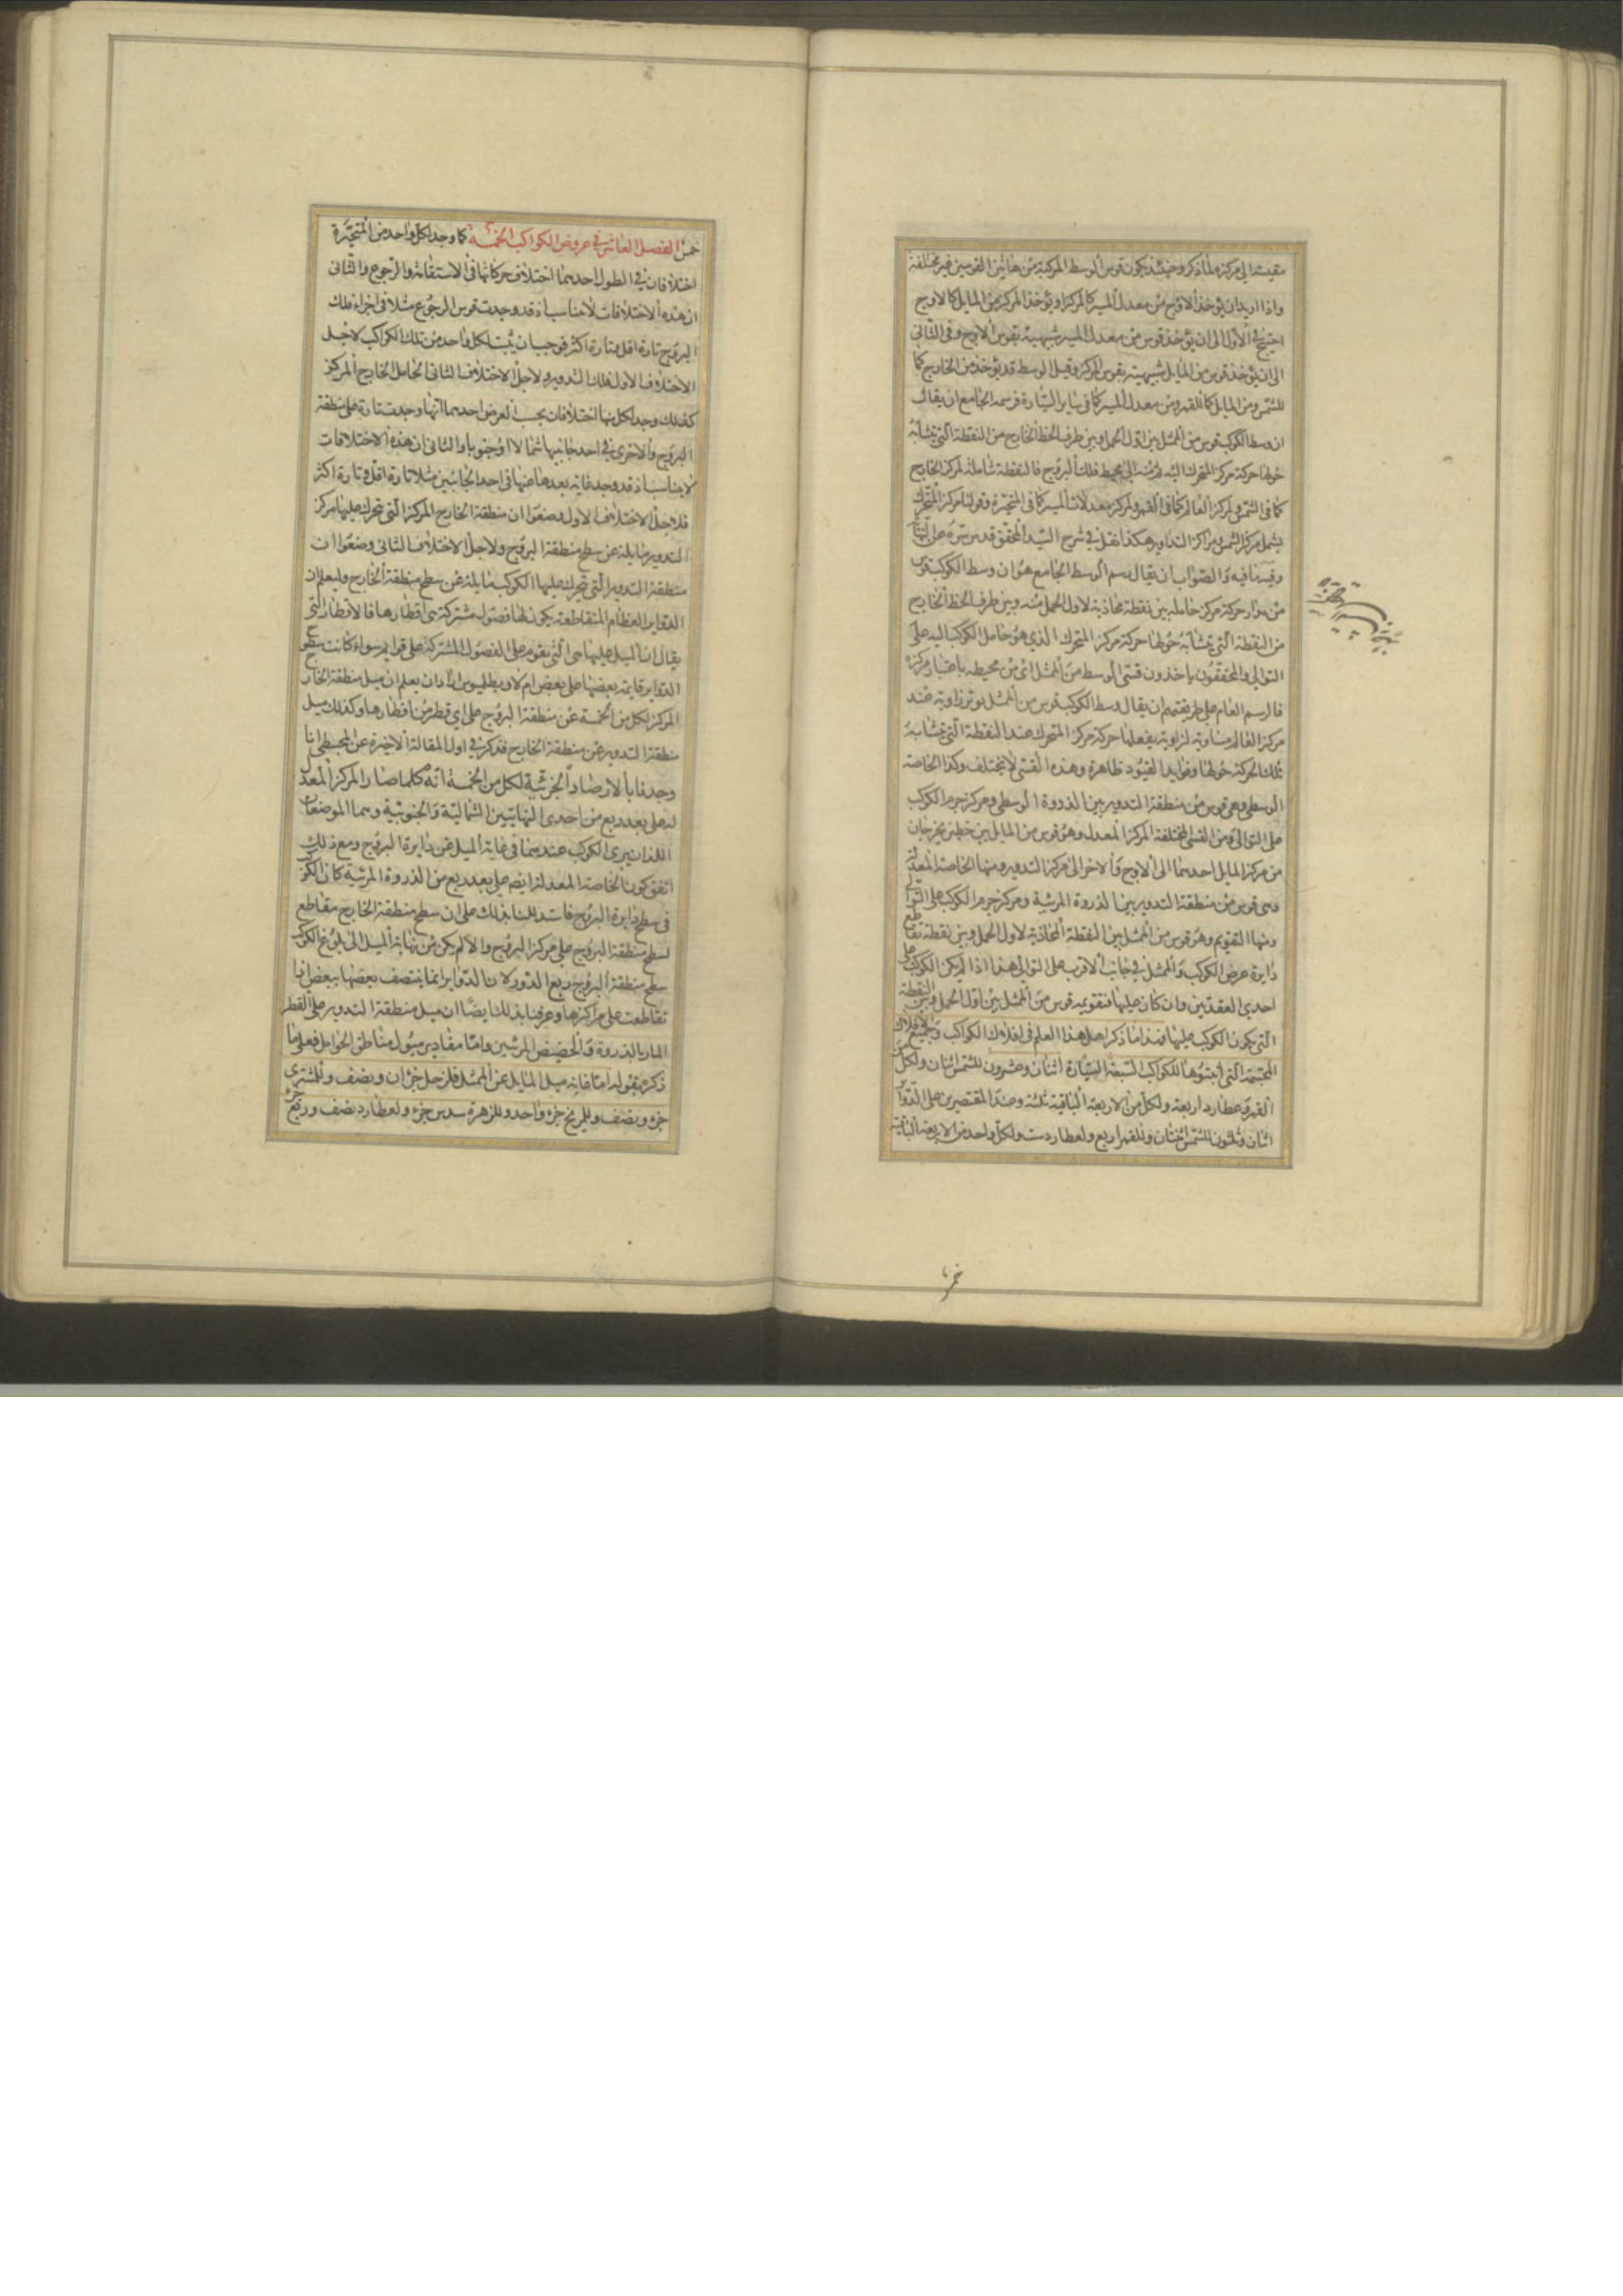 مقيسة الى مركزه لما ذكر وحينئذ يكون قوس الوسط المركبة من هاتين القوسين غير مختلفة
واذا اريد ان يؤخذ الاوج من معدل المسير كالمركز او يؤخذ المركز من المايل كالاوج
احتيج في الاول الى ان يؤخذ قوس من معدل المسير شبيهة بقوس الاوج وفي الثاني
الى ان يؤخذ قوس من المايل شبيهة بقوس المركز وقيل الوسط قد يؤخذ من الخارج كما
للشمس ومن المايل كما للقمر ومن معدل المسير كما في ساير السيارة فرسمه الجامع ان يقال
ان وسط الكوكب قوس من الممثل بين اول الحمل وبين طرف الخط الخارج من النقطة التي تتشابه
حولها حركة مركز المتحرك اليه منه الى محيط فلك البروج فالنقطة شاملة لمركز الخارج
كما في الشمس ولمركز العالم كما في القمر ولمركز معدلات المسير كما في المتحيرة وقولنا مركز المتحرك
يشمل مركز الشمس ومراكز التداوير هكذا نقل في شرح السيد المحقق قدس سره عن
وفيه ما فيه والصواب ان يقال رسم الوسط الجامع هو ان وسط الكوكب قوس
من مدار حركة مركز حامله بين نقطة محاذية لاول الحمل منه وبين طرف الخط الخارج
من النقطة التي تتشابه حولها حركة مركز المتحرك الذي هو حامل الكوكب اليه على
التوالي والمحققون ياخذون قسي الوسط من الممثل اي من محيطه باعتبار مركزه
فالرسم العام على طريقتهم ان يقال وسط الكوكب قوس من الممثل توتر زاوية عند
مركز العالم مساوية لزاوية يفعلها حركة مركز المتحرك عند النقطة التي تتشابه
تلك الحركة حولها وفوايد القيود ظاهرة وهذه القسي لا يختلف وكذا الخاصة
الوسطى وهي قوس من منطقة التدوير بين الذروة الوسطى ومركز جرم الكوكب
على التوالي ومن القسي المختلفة المركز المعدل وهو قوس من المايل بين خطين يخرجان
من مركز المايل احدهما الى الاوج والاخر الى مركز التدوير ومنها الخاصة المعدلة
وهي قوس من منطقة التدوير بين الذروة المرئية ومركز جرم الكوكب على التوالي
ومنها التقويم وهو قوس من الممثل بين النقطة المحاذية لاول الحمل وبين نقطة تقاطع
دايرة عرض الكوكب والممثل في جانب الاقرب على التوالي هذا اذا لم يكن الكوكب على
احدى العقدتين وان كان عليها فتقويمه قوس من الممثل بين اول الحمل وبين النقطة
التي يكون الكوكب عليها فهذا ما ذكر اهل هذا العلم في افلاك الكواكب وجميع الافلاك
المجسمة التي اثبتوها للكواكب السبعة السيارة اثنان وعشرون للشمس اثنان ولكل من
القمر وعطارد اربعة ولكل من الاربعة الباقية ثلثة وعند المقتصرين على الدواير
اثنان وثلثون للشمس اثنتان وللقمر اربع ولعطارد ست ولكل واحد من الاربعة الباقية
خمس الفصل العاشر في عروض الكواكب الخمسة كما وجد لكل واحد من المتحيرة
اختلافان في الطول احدهما اختلاف حركاتها في الاستقامة والرجوع والثاني
ان هذه الاختلافات لا يتناسب اذ قد وجدت قوس الرجوع مثلا في اجزاء فلك
البروج تارة اقل وتارة اكثر فوجب ان يثبت لكل واحد من تلك الكواكب لاجل
الاختلاف الاول فلك التدوير ولاجل الاختلاف الثاني الحامل الخارج المركز
كذلك وجد لكل منها اختلافان بحسب العرض احدهما انها وجدت تارة على منطقة
البروج والاخرى في احد جانبيها شمالا او جنوبا والثاني ان هذه الاختلافات
لا يتناسب اذ قد وجد غاية بعدها عنها في احد الجانبين مثلا تارة اقل وتارة اكثر
فلاجل الاختلاف الاول وضعوا ان منطقة الخارج المركز التي تتحرك عليها مركز
التدوير مايلة عن سطح منطقة البروج ولاجل الاختلاف الثاني وضعوا ان
منطقة التدوير التي تتحرك عليها الكوكب مايلة عن سطح منطقة الخارج وليعلم ان
الدواير العظام المتقاطعة يكون لها فصول مشتركة هي اقطارها فالاقطار التي
يقال ان الميل عليها هي التي يقوم على الفصول المشتركة على قوايم سواء كانت سطوح
الدواير قايمة بعضها على بعض ام لا وبطليوس اراد ان يعلم ان ميل منطقة الخارج
المركز لكل من الخمسة عن منطقة البروج على اي قطر من اقطارها وكذلك ميل
منطقة التدوير عن منطقة الخارج فذكر في اول المقالة الاخيرة عن المجسطي انا
وجدنا بالارصاد الجزئية لكل من الخمسة انه كلما صار المركز المعدل
له على بعد ربع من احدى النهايتين الشمالية والجنوبية وهما الموضعان
اللذان يرى الكوكب عندهما في غاية الميل عن دايرة البروج ومع ذلك
اتفق كون الخاصة المعدلة ايضا على بعد ربع من الذروة المرئية كان الكوكب
في سطح دايرة البروج فاستدللنا بذلك على ان سطح منطقة الخارج مقاطع
لسطح منطقة البروج على مركز البروج والا لم يكن من نهاية الميل الى بلوغ الكوكب
سطح منطقة البروج ربع الدور لان الدواير انما ينتصف بعضها ببعض اذا
تقاطعت على مراكزها وعرفنا بذلك ايضا ان ميل منطقة التدوير على القطر
المار بالذروة والحضيض المرئيين واما مقادير ميول مناطق الحوامل فعلى ما
ذكره بقوله اما غاية ميل المايل عن الممثل فلزحل جزان ونصف وللمشتري
جزء ونصف وللمريخ جزء واحد وللزهرة سدس جزء ولعطارد نصف وربع جزء